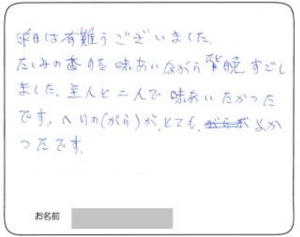 昨日は有難うございました。
たたみの香りを味あいながら昨晩すごし
ました。主人と二人で味あいたかった
です。へりの(がら)が、とても、よか
ったです。
お名前